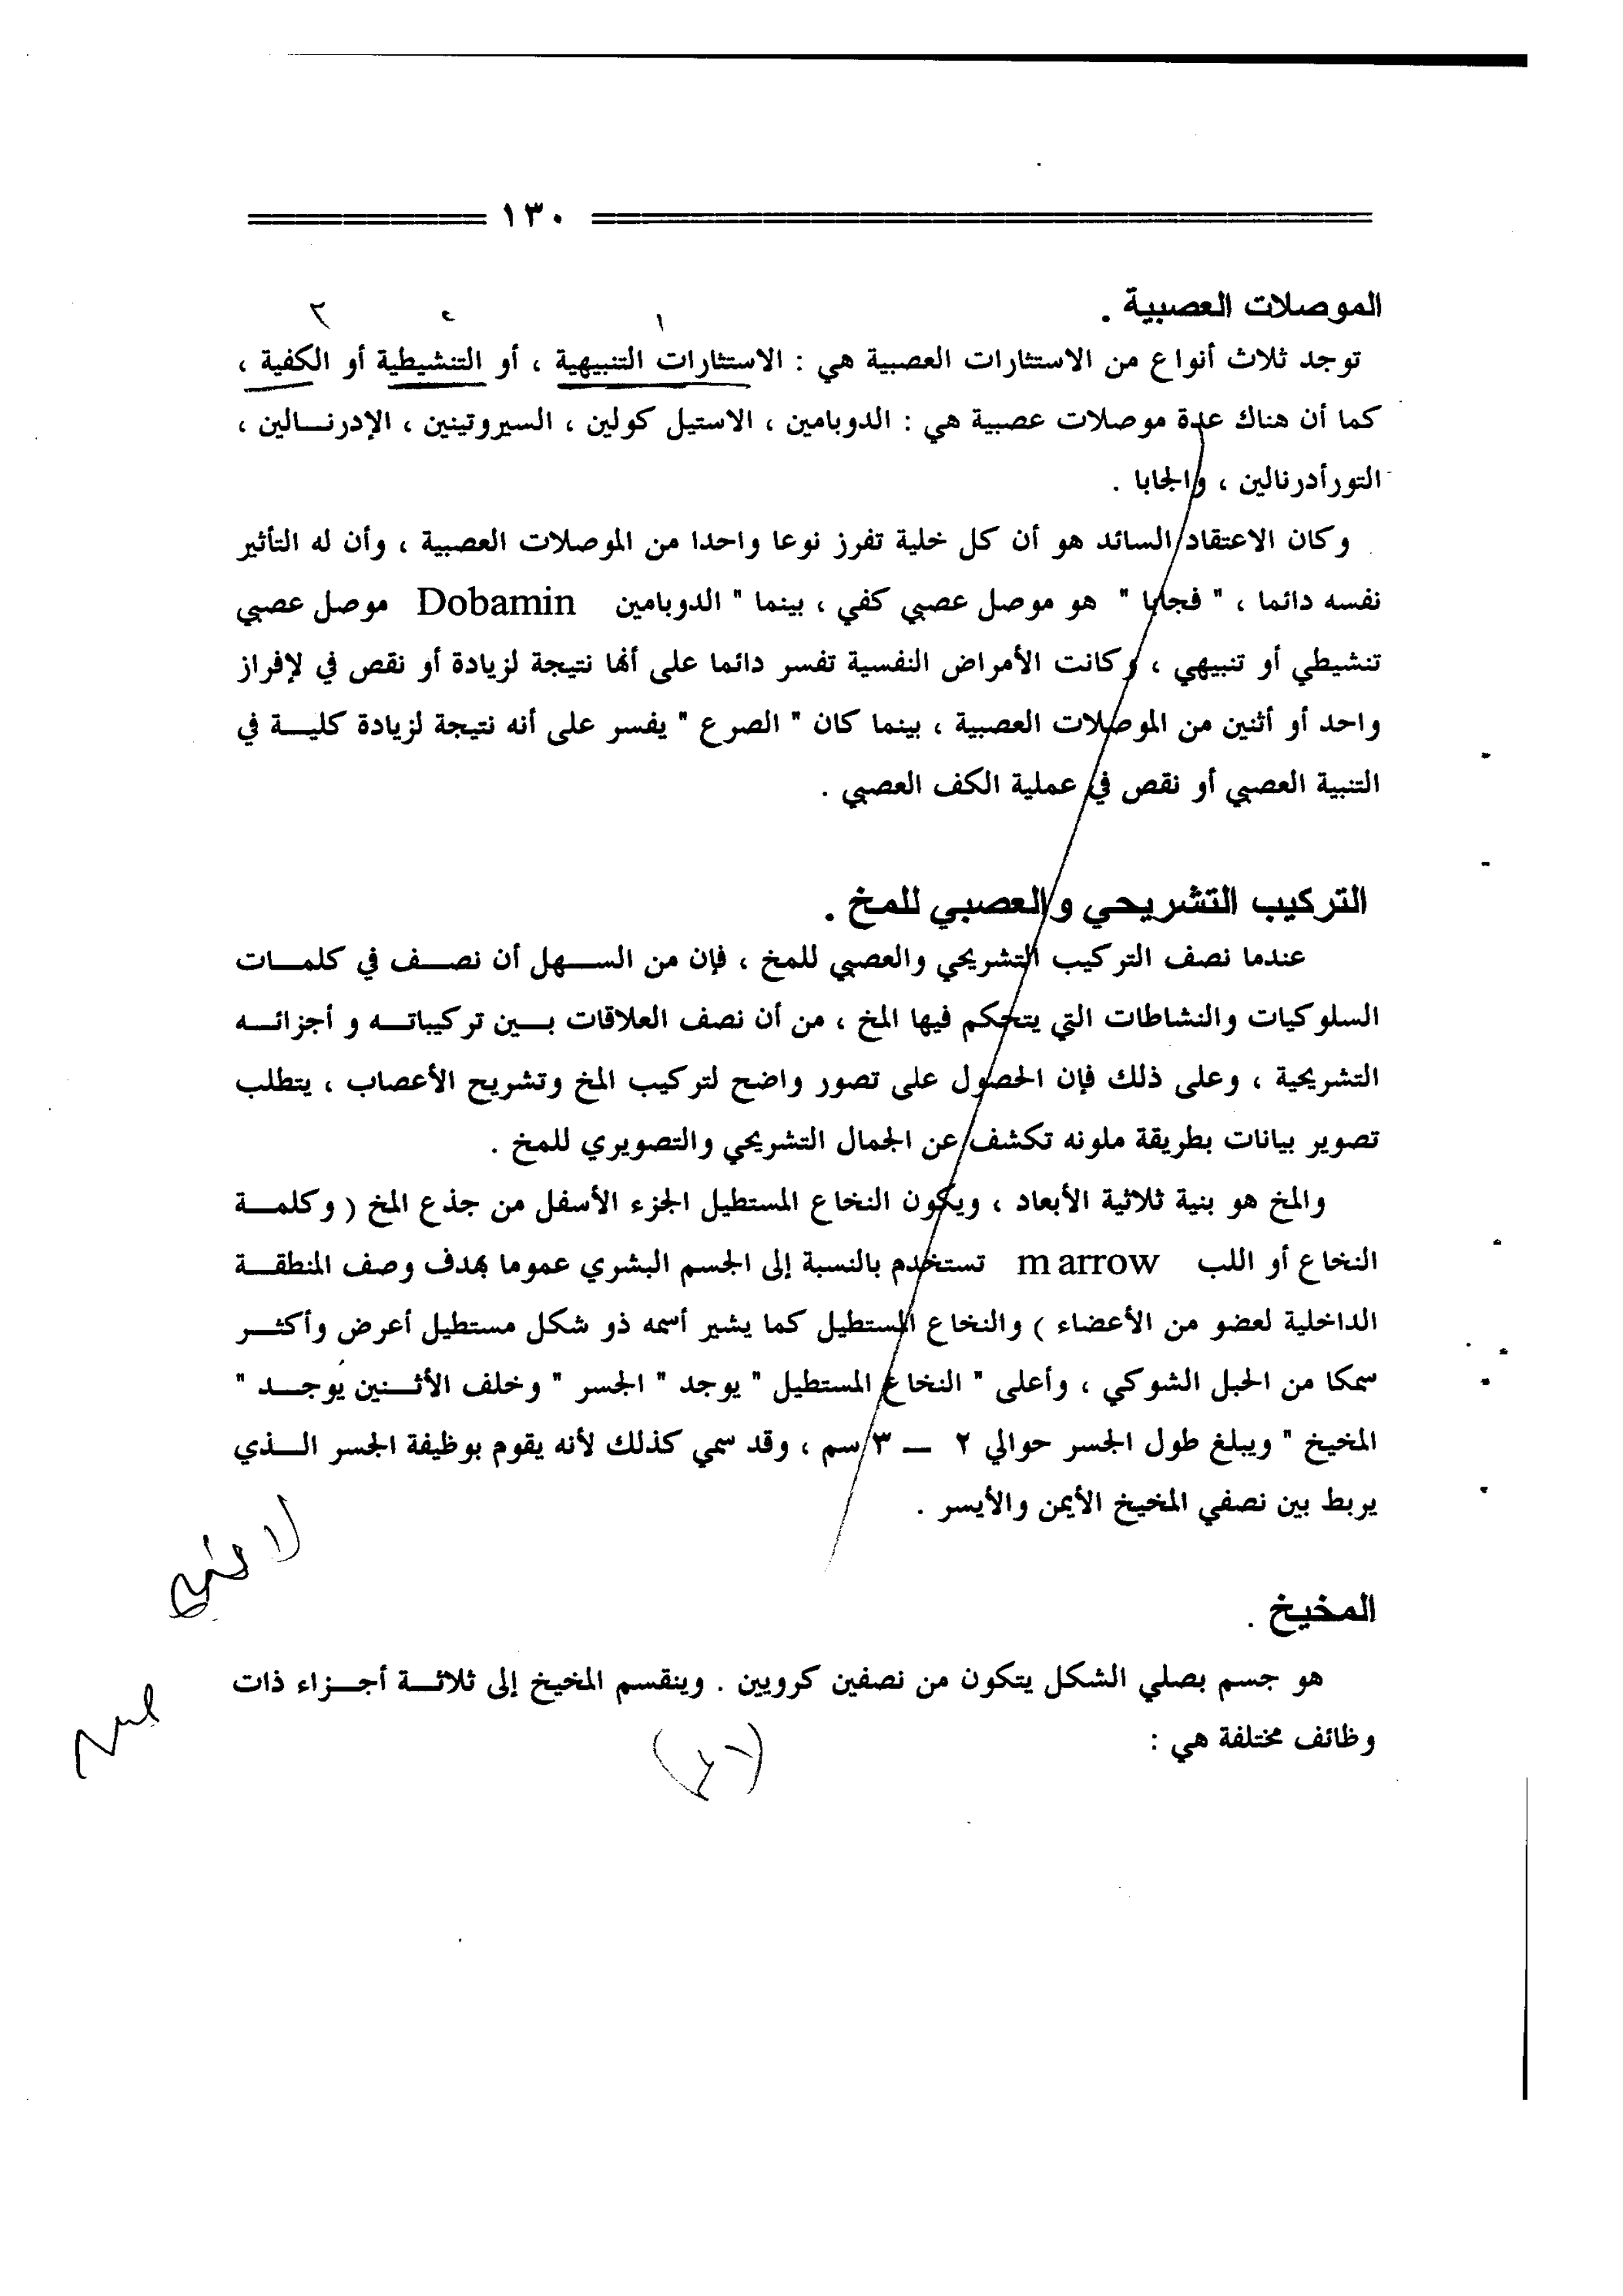 ١٣٠
الموصلات العصبية .
توجد ثلاث أنواع من الاستثارات العصبية هي : الاستثارات التنبيهية ، أو التنشيطية أو الكفية ،
كما أن هناك عدة موصلات عصبية هي : الدوبامين ، الاستيل كولين ، السيروتينين ، الإدرنالين ،
التورأدرنالين ، والجابا .
وكان الاعتقاد السائد هو أن كل خلية تفرز نوعا واحدا من الموصلات العصبية ، وأن له التأثير
نفسه دائما ، " فجابا " هو موصل عصبي كفي ، بينما " الدوبامين Dobamin موصل عصبي
تنشيطي أو تنبيهي ، وكانت الأمراض النفسية تفسر دائما على أنها نتيجة لزيادة أو نقص في لإفراز
واحد أو أثنين من الموصلات العصبية ، بينما كان " الصرع " يفسر على أنه نتيجة لزيادة كلية في
التنبية العصبي أو نقص في عملية الكف العصبي .
التركيب التشريحي والعصبي للمخ .
عندما نصف التركيب التشريحي والعصبي للمخ ، فإن من السهل أن نصف في كلمات
السلوكيات والنشاطات التي يتحكم فيها المخ ، من أن نصف العلاقات بين تركيباته و أجزائه
التشريحية ، وعلى ذلك فإن الحصول على تصور واضح لتركيب المخ وتشريح الأعصاب ، يتطلب
تصوير بيانات بطريقة ملونه تكشف عن الجمال التشريحي والتصويري للمخ .
والمخ هو بنية ثلاثية الأبعاد ، ويكون النخاع المستطيل الجزء الأسفل من جذع المخ ( وكلمة
النخاع أو اللب marrow تستخدم بالنسبة إلى الجسم البشري عموما بهدف وصف المنطقة
الداخلية لعضو من الأعضاء ) والنخاع المستطيل كما يشير أسمه ذو شكل مستطيل أعرض وأكثر
سمكا من الحبل الشوكي ، وأعلى " النخاع المستطيل " يوجد " الجسر " وخلف الأثنين يوجد "
المخيخ " ويبلغ طول الجسر حوالي ٢ – ٣ سم ، وقد سمي كذلك لأنه يقوم بوظيفة الجسر الذي
يربط بين نصفي المخيخ الأيمن والأيسر .
المخيخ .
هو جسم بصلي الشكل يتكون من نصفين كرويين . وينقسم المخيخ إلى ثلاثة أجزاء ذات
وظائف مختلفة هي :